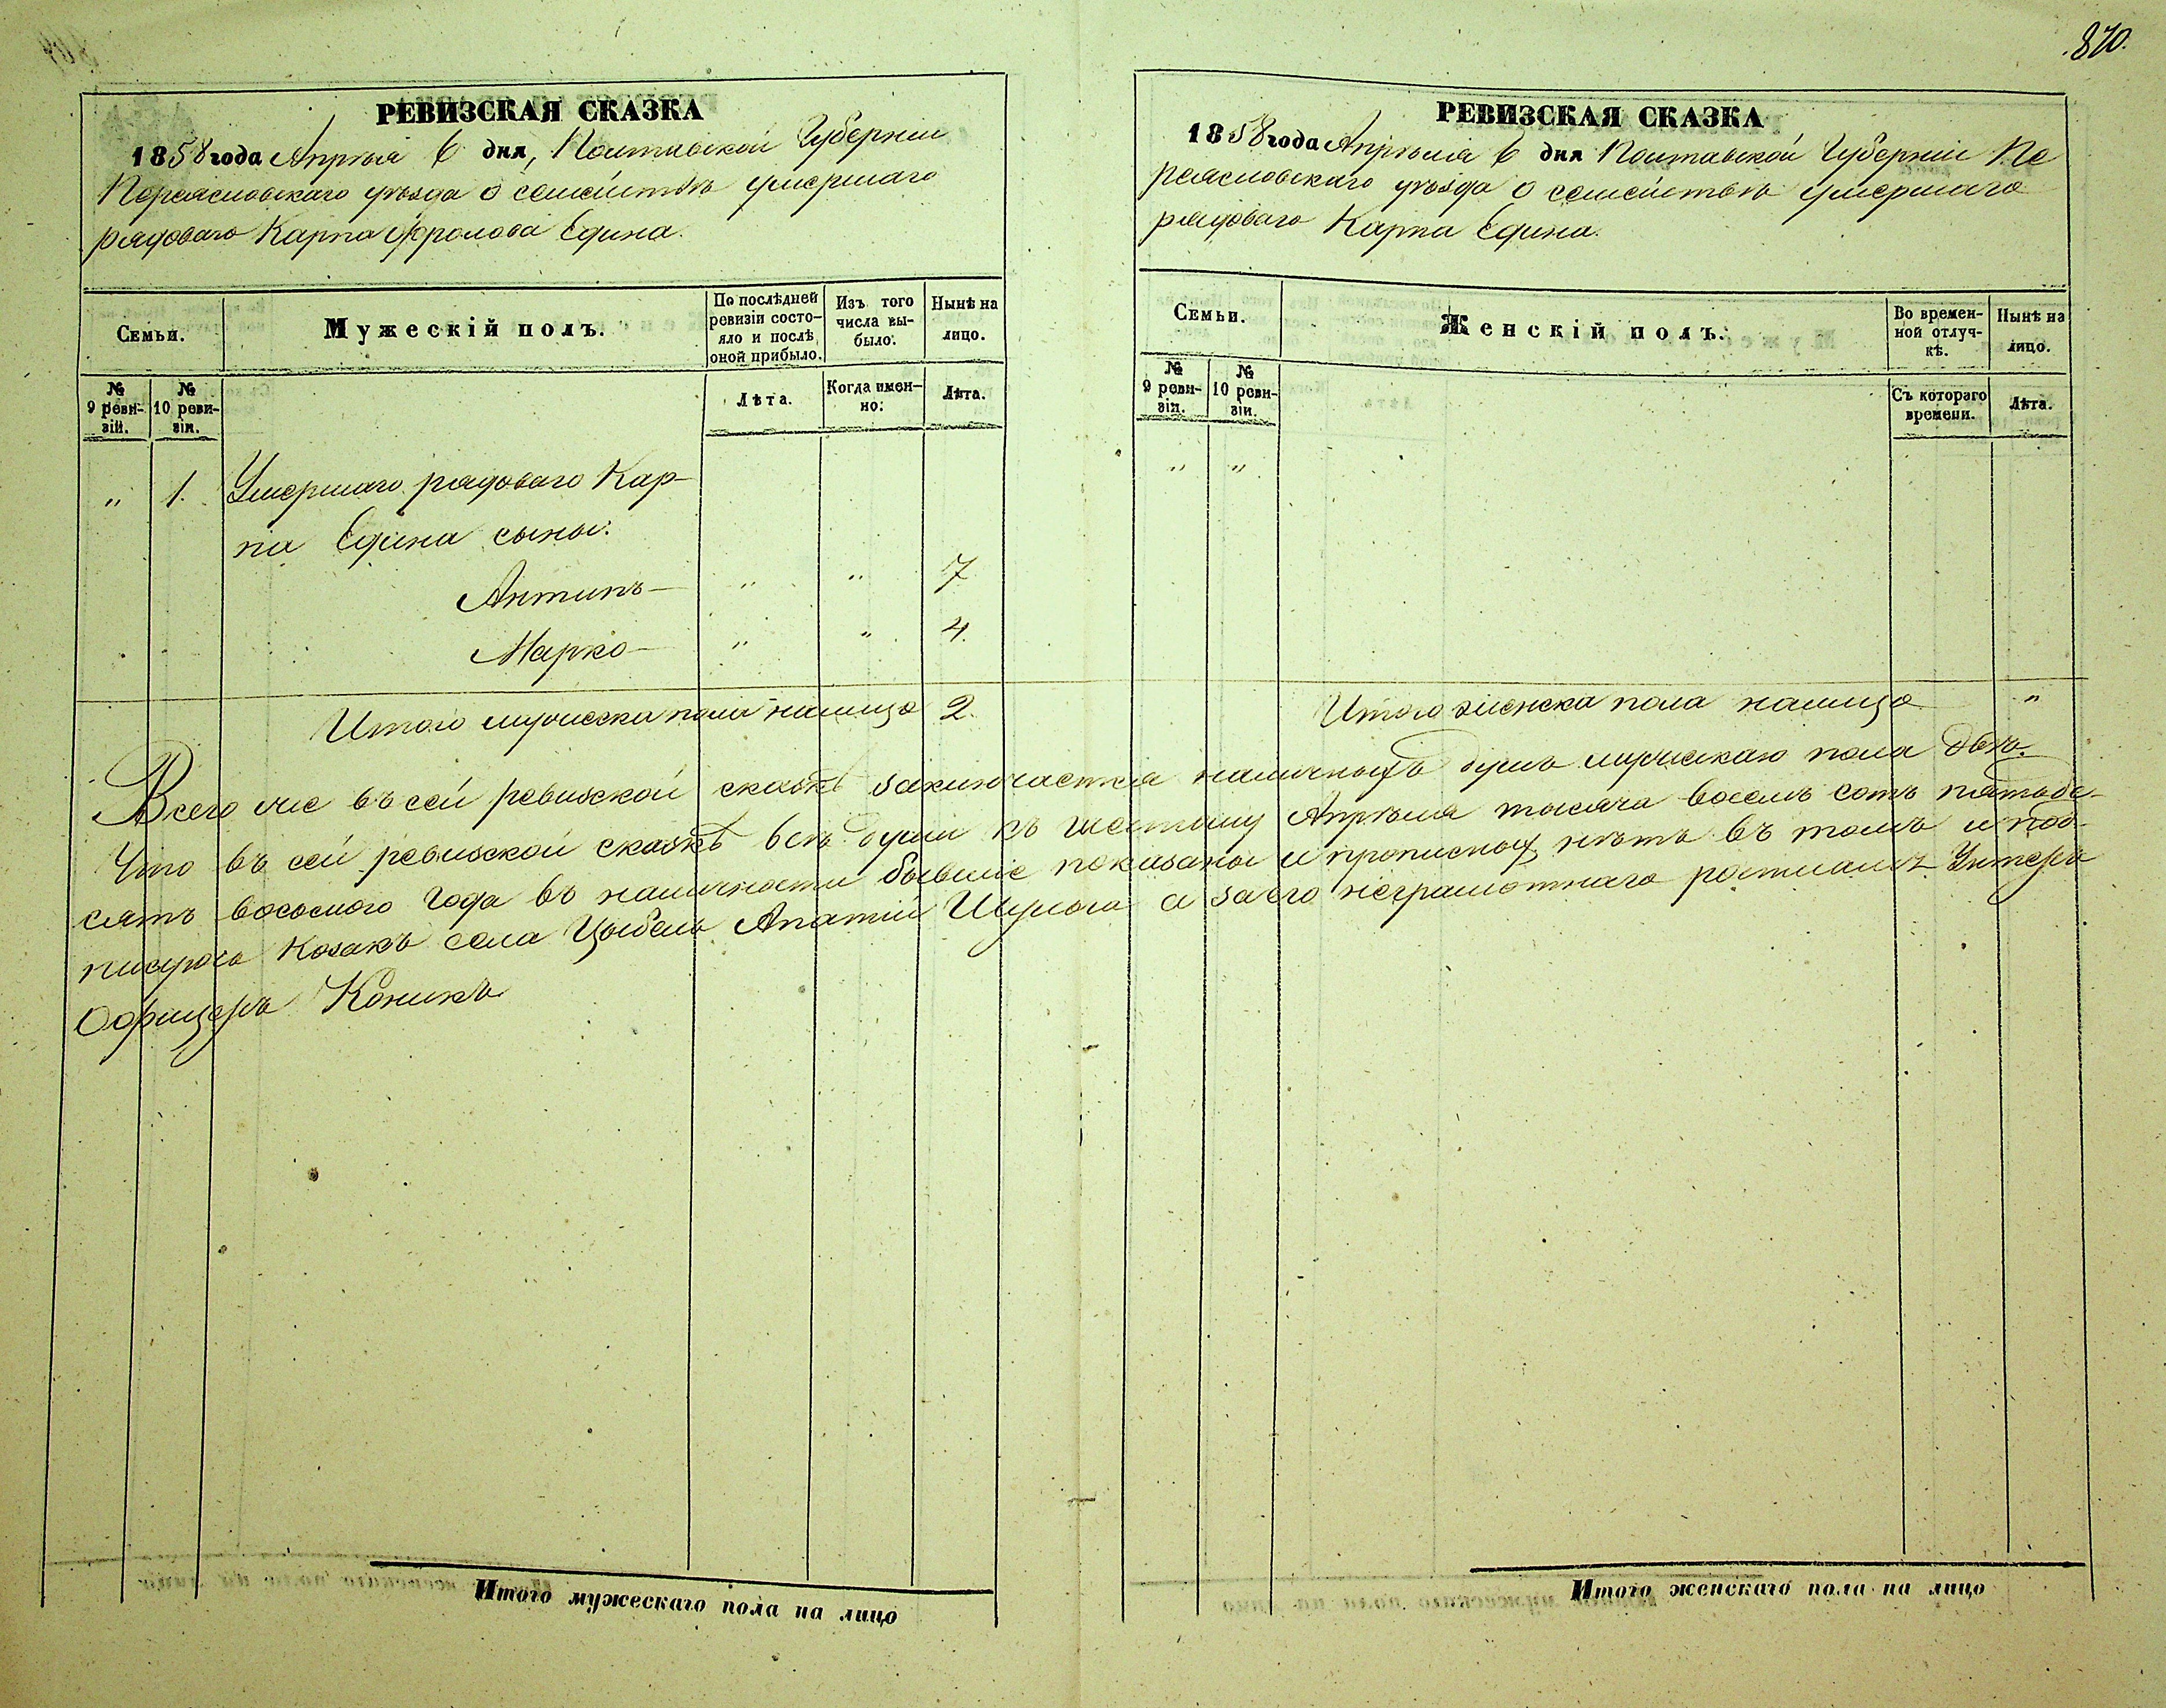 870.
РЕВИЗСКАЯ СКАЗКА
1858 года Апрѣля 6 дня, Полтавской Губерніи
Переяславскаго уѣзда о семействѣ умершаго
рядоваго Карпа Фролова Едина.
Семьи.
Мужескій полъ.
По послѣдней ревизіи состо-
яло и послѣ оной прибыло.
Изъ того числа вы-
было.
Нынѣ на лицо.
№ 9 реви-
зіи.
№ 10 реви-
зіи.
Лѣта.
Когда имен-
но.
Лѣта.
" 1. Умершаго рядоваго Кар-
па Едина сыны:
Антипъ " " 7
Марко " " 4.
Итого мужеска пола налицо 2.
РЕВИЗСКАЯ СКАЗКА
1858 года Апрѣля 6 дня Полтавской Губерніи Пе
реяславскаго уѣзда о семействѣ умершаго
рядоваго Карпа Едина.
Семьи.
Женскій полъ.
Во времен-
ной отлуч-
кѣ.
Нынѣ на лицо.
№ 9 реви-
зіи.
№ 10 реви-
зіи.
Съ котораго времени.
Лѣта.
" "
Итого женска пола налицо "
Всего же въ сей ревизской сказкѣ заключается наличныхъ душъ мужескаго пола двѣ.
Что въ сей ревизской сказкѣ всѣ души къ шестому Апрѣля тысяча восемь сотъ пятьде-
сятъ восьмого года въ наличности бывшіе показаны и прописныхъ нѣтъ въ томъ и под-
писуюсь Козакъ села Цыбель а за его неграмотнаго Унтеръ
Офицеръ Коникъ
Итого мужескаго пола на лицо
Итого женскаго пола на лицо